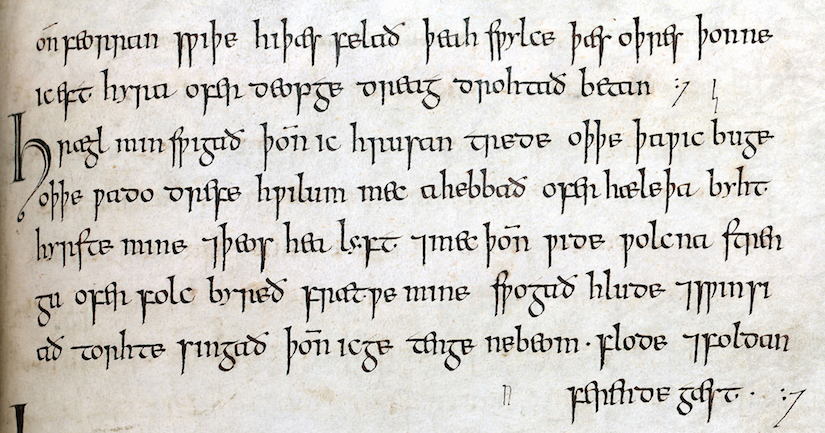 on̄ feorran swiþe hiþæs felað þeah swylce þæs oþres þonne
iceft hyra ofer deopge dreag drohtað betan :⁊
Hrægl min swigað þon̄ ic hrusan trede oþþe þawic buge
oþþe wado drefe hwilum mec ahebbað ofer hæleþa byht
hyrste mine ⁊þeos hea lyft ⁊mec þon̄ wide wolcna stren
gu ofer folc byreð frætwe mine swogað hlude ⁊swinsi
að torhte singað þon̄ icge tenge nebeom · flode ⁊foldan
ferende gæst · :⁊